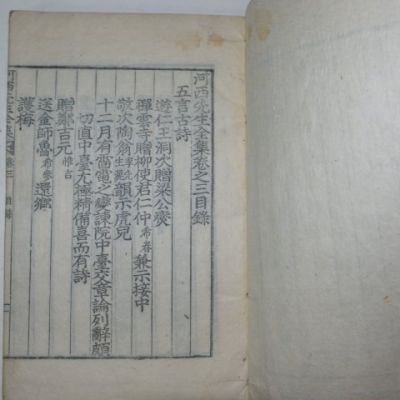 河西先生全集卷之三目錄
五言古詩
遊仁王洞次贈梁公燮
禪雲寺贈柳使君仁仲希春兼示接中
敬次陶翁韻示虎兒
十二月有雷電之變諫院中臺交章論列辭頗
切直中臺尤極精備喜而有詩
贈鄭吉元惟吉
送金師魯希參還鄉
護梅
河西先生全集 卷三 目錄 一